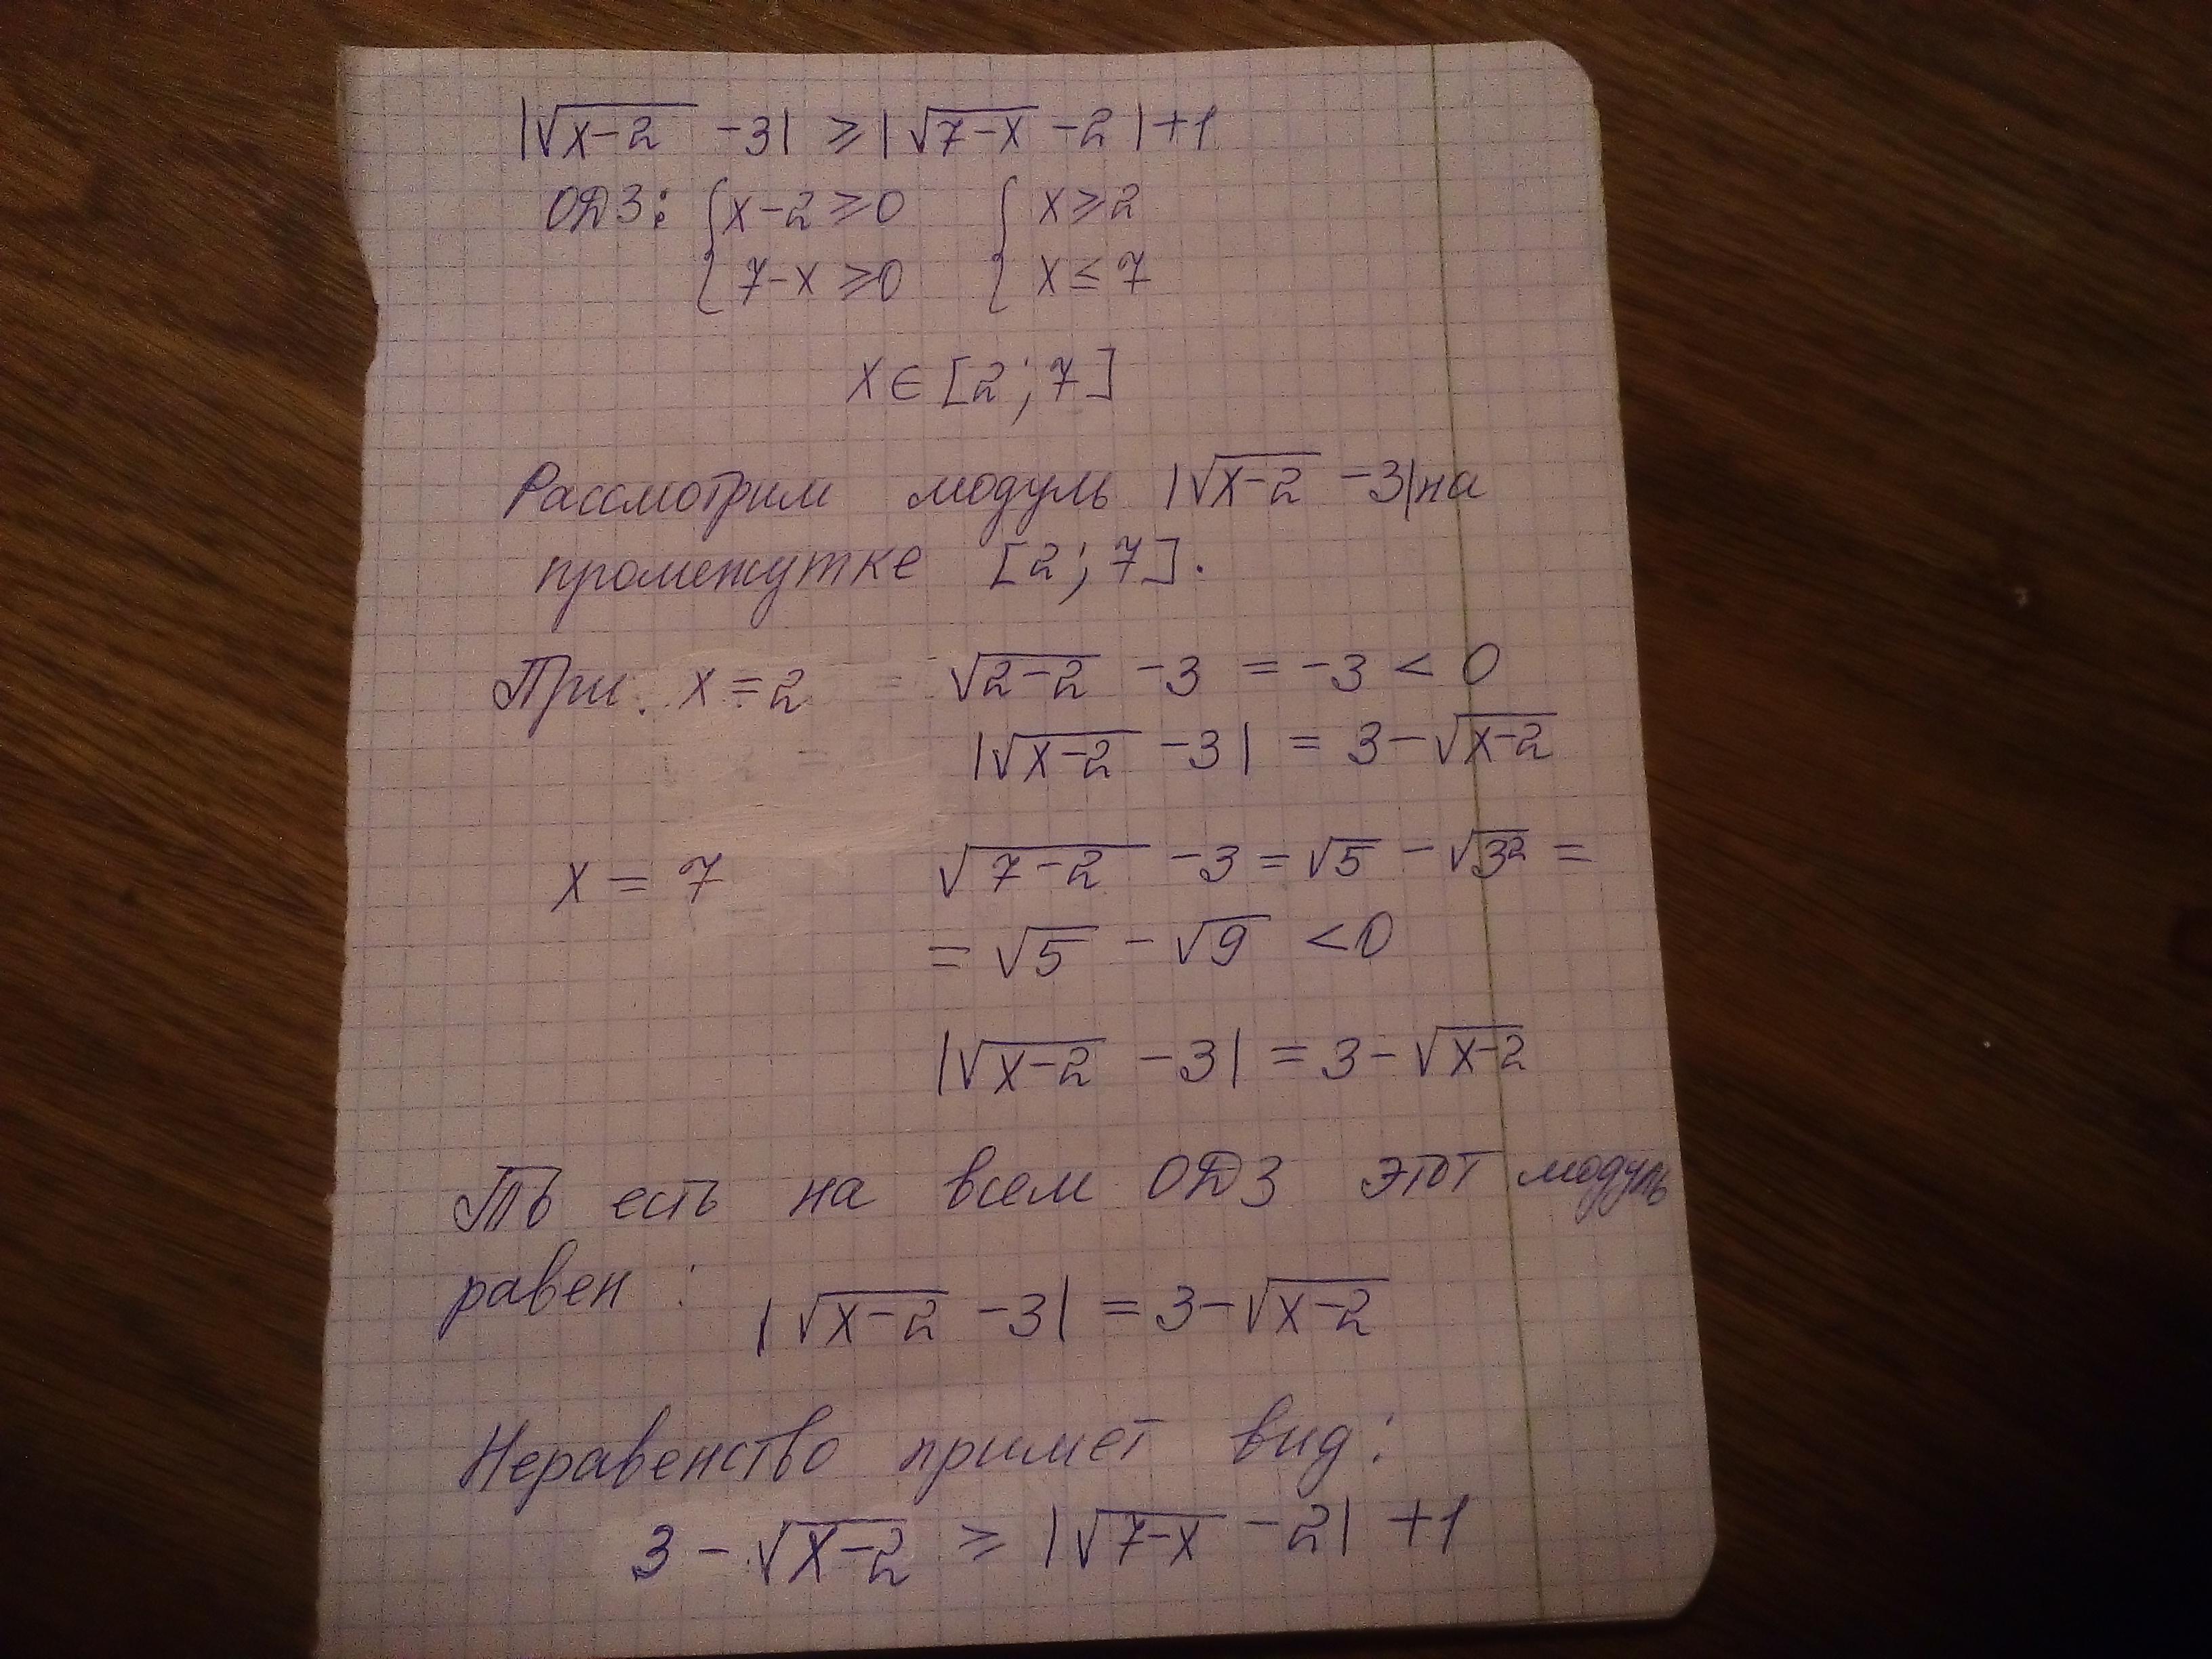 |√(x-2) -3| ≥ |√(7-x) -2|+1
ОДЗ: { x-2≥0 { x≥2
{ 7-x≥0 { x≤7
x∈[2;7]
Рассмотрим модуль |√(x-2) -3| на
промежутке [2;7].
При x=2 √(2-2) -3 = -3 < 0
|√(x-2) -3| = 3-√(x-2)
x = 7 √(7-2) -3 = √5 - √3² =
= √5 - √9 <0
|√(x-2) -3| = 3-√(x-2)
То есть на всем ОДЗ этот модуль
равен: |√(x-2) -3| = 3-√(x-2)
Неравенство примет вид:
3-√(x-2) ≥ |√(7-x) -2| +1